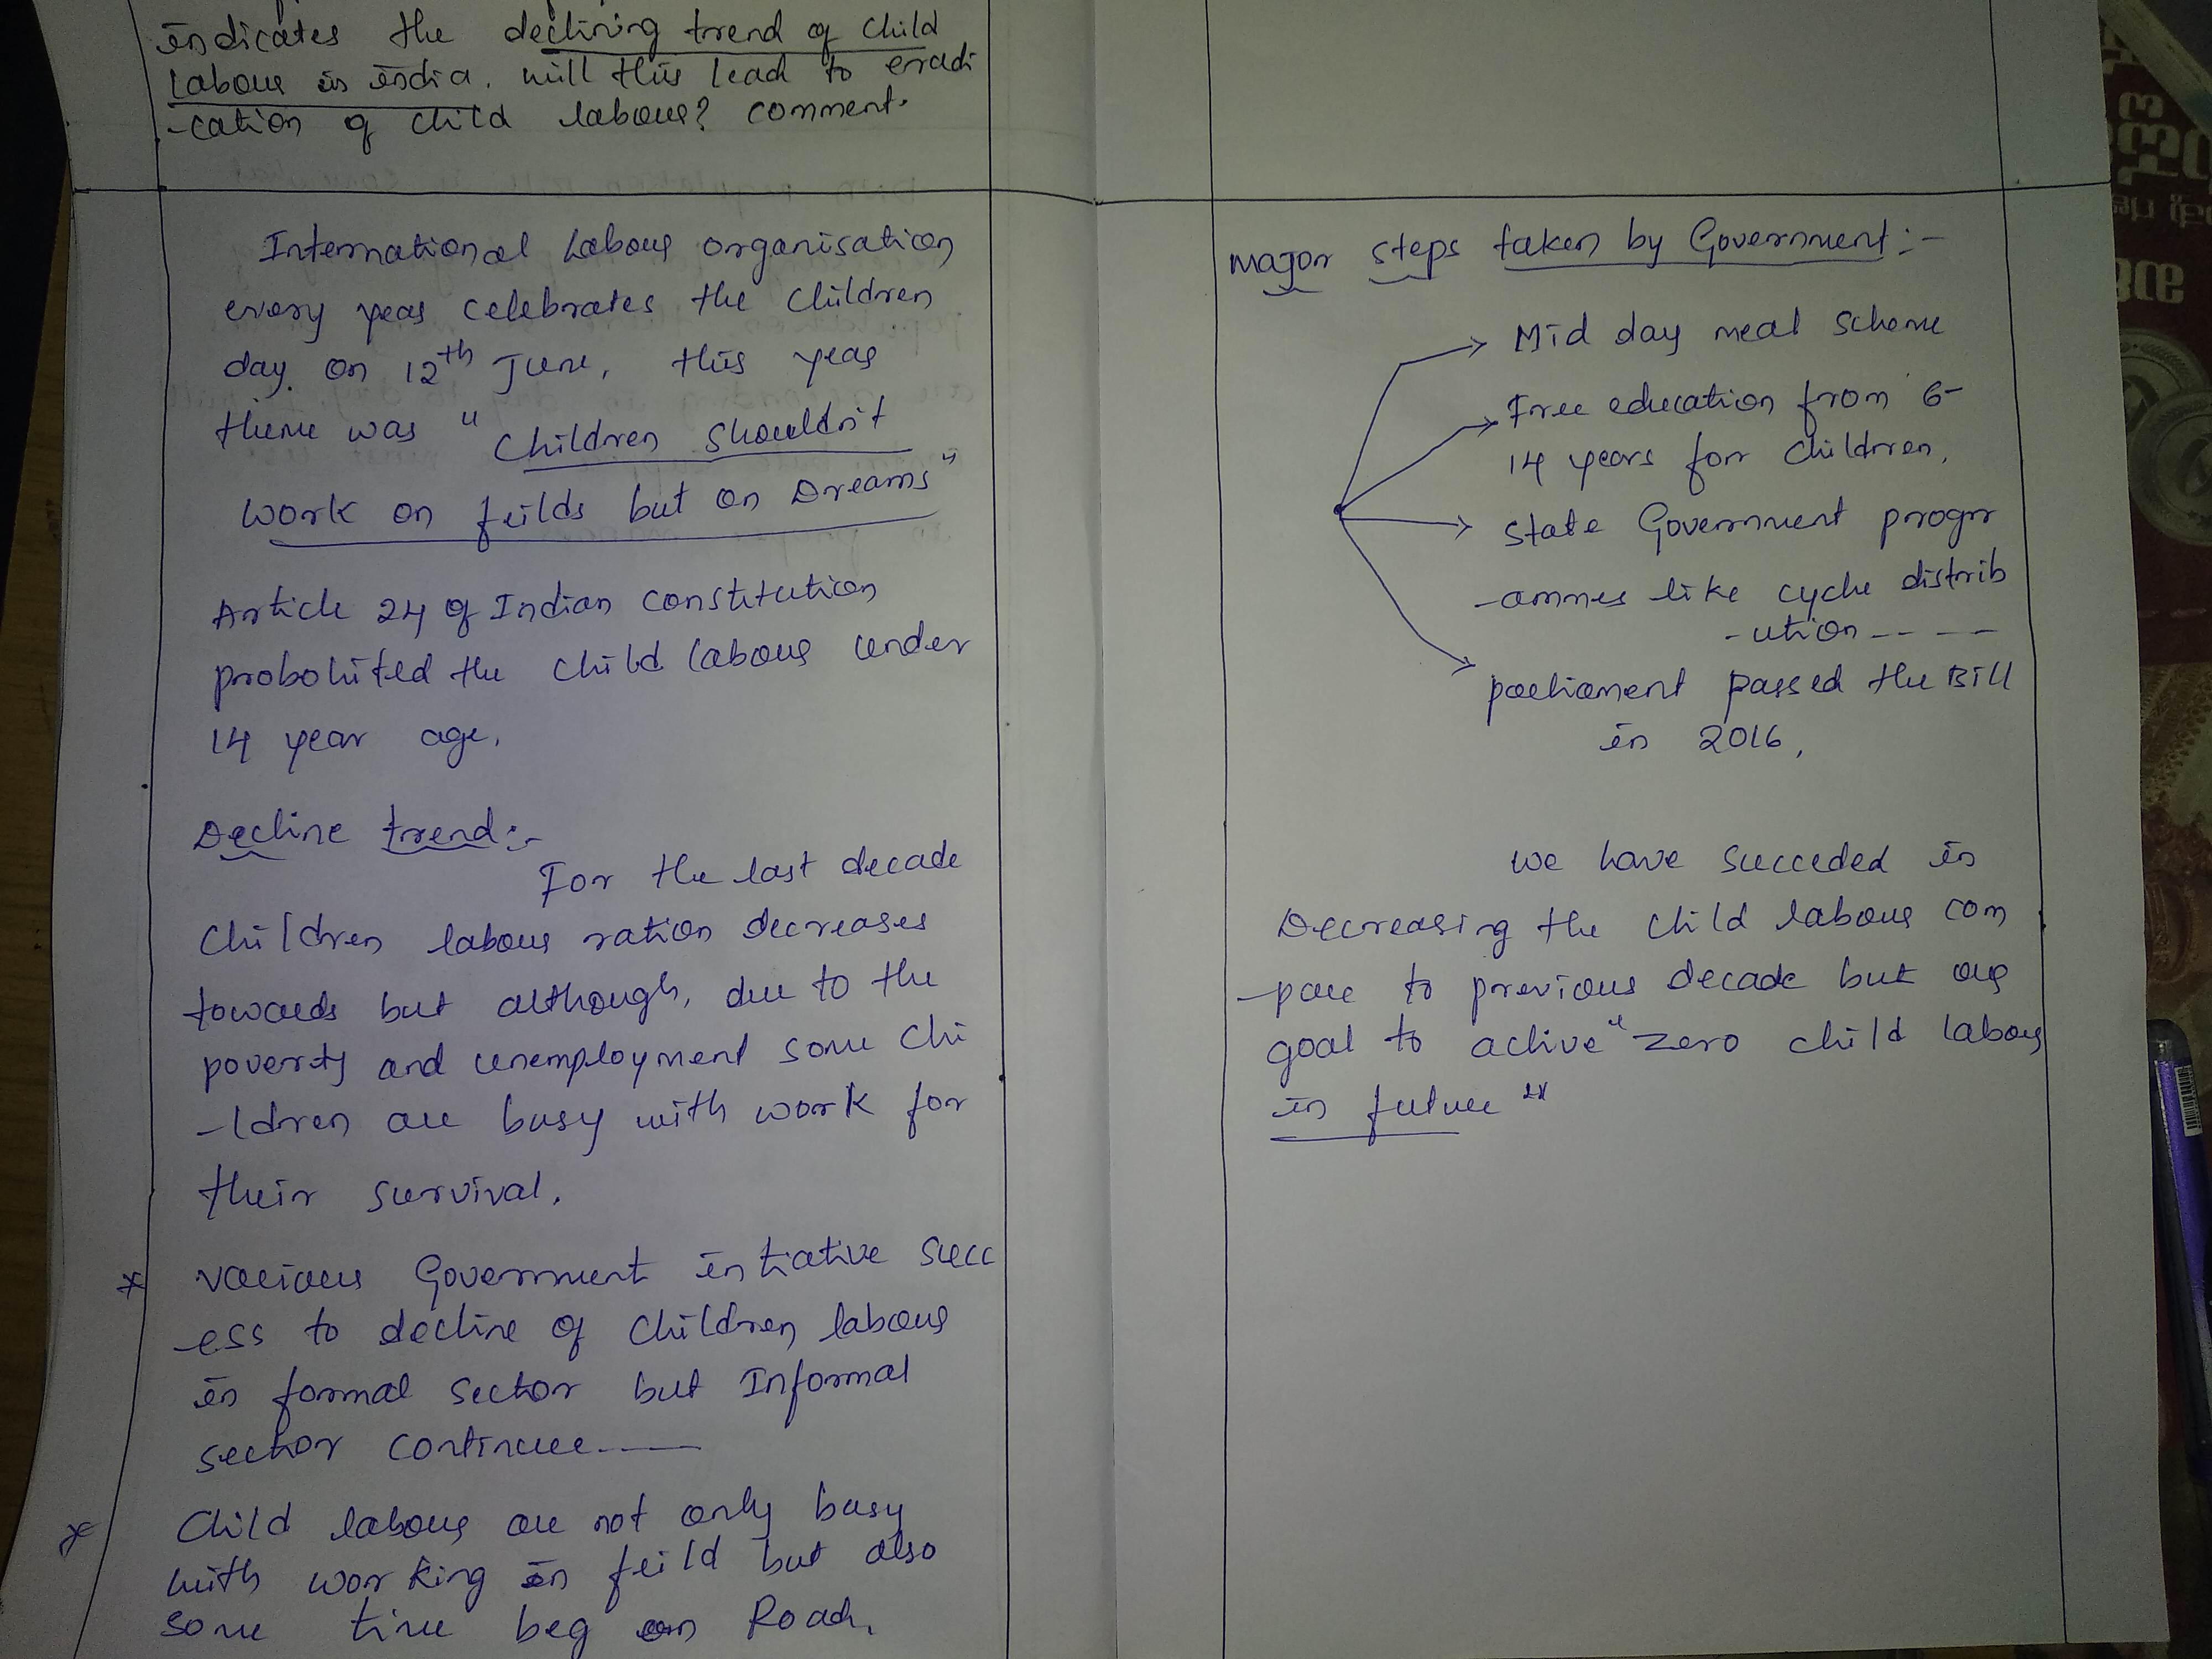 indicates the declining trend of child
labour in india. will this lead to eradi
-cation of child labour? comment.
International Labour organisation
every year celebrates the children
day. on 12th June, this year
theme was "children shouldn't
work on feilds but on Dreams"
Article 24 of Indian constitution
probohited the child labour under
14 year age.
Decline trend:-
For the last decade
children labour ration decreases
towards but although, due to the
poverty and unemployment some chi
-ldren are busy with work for
their survival.
* various Government intiative succ
-ess to decline of children labour
in formal sector but Informal
sector continue----
* Child labour are not only busy
with working in feild but also
some time beg on Road.
Major steps taken by Government:-
Mid day meal scheme
Free education from 6-
14 years for children,
state Government progr
-ammes like cycle distrib
-ution-----
parliament passed the Bill
in 2016,
we have succeded in
Decreasing the child labour com
-pare to previous decade but our
goal to achive "zero child labour
in future"